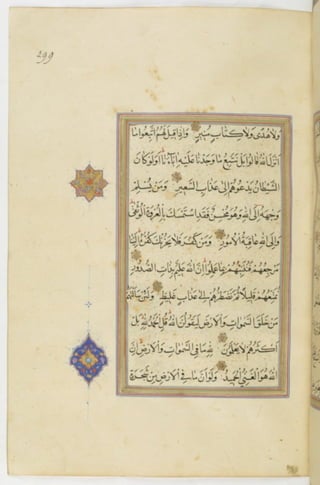 299
ولا هدى ولا كتاب منير واذا قيل لهم اتبعوا ما
انزل الله قالوا بل نتبع ما وجدنا عليه اباءنا اولو كان
الشيطان يدعوهم الى عذاب السعير ومن يسلم
وجهه الى الله وهو محسن فقد استمسك بالعروة الوثقى
والى الله عاقبة الامور ومن كفر فلا يحزنك كفره الينا
مرجعهم فننبئهم بما عملوا ان الله عليم بذات الصدور
نمتعهم قليلا ثم نضطرهم الى عذاب غليظ ولئن سالتهم
من خلق السموات والارض ليقولن الله قل الحمد لله بل
اكثرهم لا يعلمون لله ما في السموات والارض ان
الله هو الغني الحميد ولو ان ما في الارض من شجرة